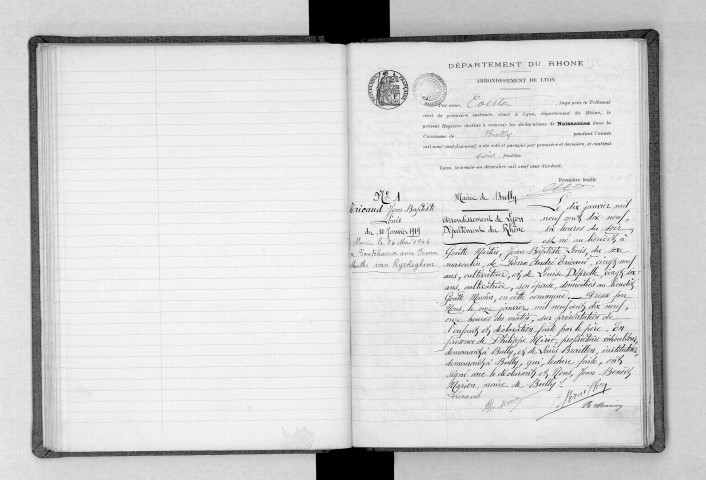 DÉPARTEMENT DU RHONE
ARRONDISSEMENT DE LYON
Par nous, , Juge près le Tribunal
civil de première instance, séant à Lyon, département du Rhône, le
présent Registre destiné à recevoir les déclarations de Naissances dans la
Commune de Bully pendant l'année
mil neuf cent dix-neuf, a été coté et paraphé par première et dernière, et contient
feuillets
Lyon, le trente-un décembre mil neuf cent dix-huit.
Première feuille
N° 1
Ericaud Jean Baptiste
Louis
du 10 Janvier 1919
Marié le 26 Mai 1946
à avec
Marthe van
Mairie de Bully
Arrondissement de Lyon
Département du Rhône
Le dix janvier mil
neuf cent dix-neuf,
six heures du soir
est né au lieudit à
Goutte Martin, Jean Baptiste Louis, du sexe
masculin, de Pierre André Ericaud, vingt-neuf
ans, cultivateur, et de Louise Déprelle, vingt-six
ans, cultivatrice, son épouse, domiciliés au lieudit
Goutte Martin, en cette commune. — Dressé par
Nous, le onze janvier mil neuf cent dix neuf,
onze heures du matin, sur présentation de
l'enfant et déclaration faite par le père. En
présence de Philippe , propriétaire
demeurant à Bully, et de Louis Braillon, instituteur,
demeurant à Bully, qui, lecture faite, ont
signé avec le déclarant et Nous, Jean Benoît
Marion, maire de Bully.
Ericaud